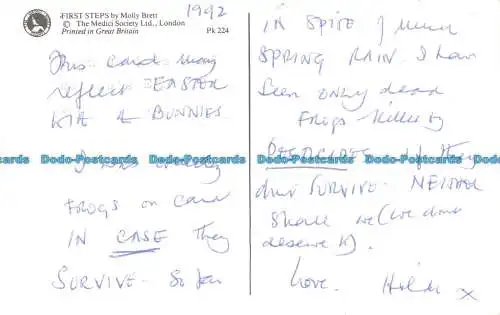 1992
FIRST STEPS by Molly Brett
© The Medici Society Ltd., London
Printed in Great Britain
Pk 224
This card may
reflect EASTER
KIT & BUNNIES
I
FROGS on card
IN CASE they
SURVIVE. So far
IN SPITE of much
SPRING RAIN I have
seen ONLY dead
FROGS - killed by
PESTICIDES. If they
don't SURVIVE. NEITHER
shall we (we don't
deserve it).
Love. Hilda x
Dodo-Postcards Dodo-Postcards Dodo-Postcards Dodo-Postcards